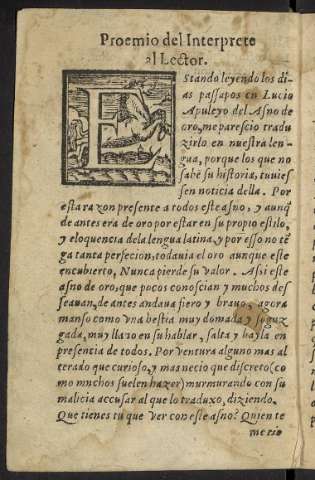 Proemio del Interprete
al Lector.
EStando leyendo los di-
as passapos en Lucio
Apuleyo del Asno de
oro, me parescio tradu
zirlo en nuestra len-
gua, porque los que no
sabē su historia, tuuies
sen noticia della. Por
esta razon presente a todos este asno, y aunq̄
de antes era de oro por estar en su propio estilo,
y eloquencia de la lengua latina, y por esso no tē
ga tanta perfecion, todauia el oro aunque este
encubierto, Nunca pierde su valor. Assi este
asno de oro, que pocos conoscian y muchos des
seauan, de antes andaua fiero y brauo, agora
manso como vna bestia muy domada y sojuz
gada, muy llano en su hablar, salta y bayla en
presencia de todos. Por ventura alguno mas al
terado que curioso, y mas necio que discreto (co
mo muchos suelen hazer) murmurando con su
malicia accusar al que lo traduxo, diziendo.
Que tienes tu que ver con este asno? Quien te
metio